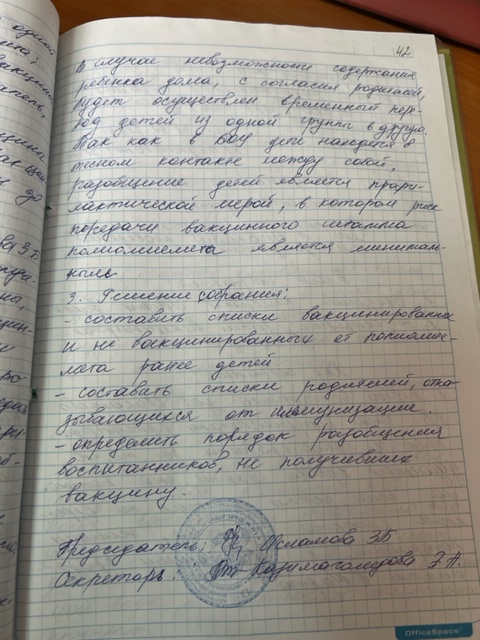 42
В случае невозможности содержания
ребенка дома, с согласия родителей,
будет осуществлен временный пере-
вод детей из одной группы в другую.
Так как в ДОУ дети находятся в
тесном контакте между собой,
разобщение детей является профи-
лактической мерой, в котором риск
передачи вакцинного штамма
полиомиелита является минималь-
ным.
3. Решение собрания:
- составить списки вакцинированных
и не вакцинированных от полиомие-
лита ранее детей
- составить списки родителей, отка-
зывающихся от иммунизации.
- определить порядок разобщения
воспитанников, не получивших
вакцину.
Председатель: Исламова З.Б
Секретарь:
OfficeSpace